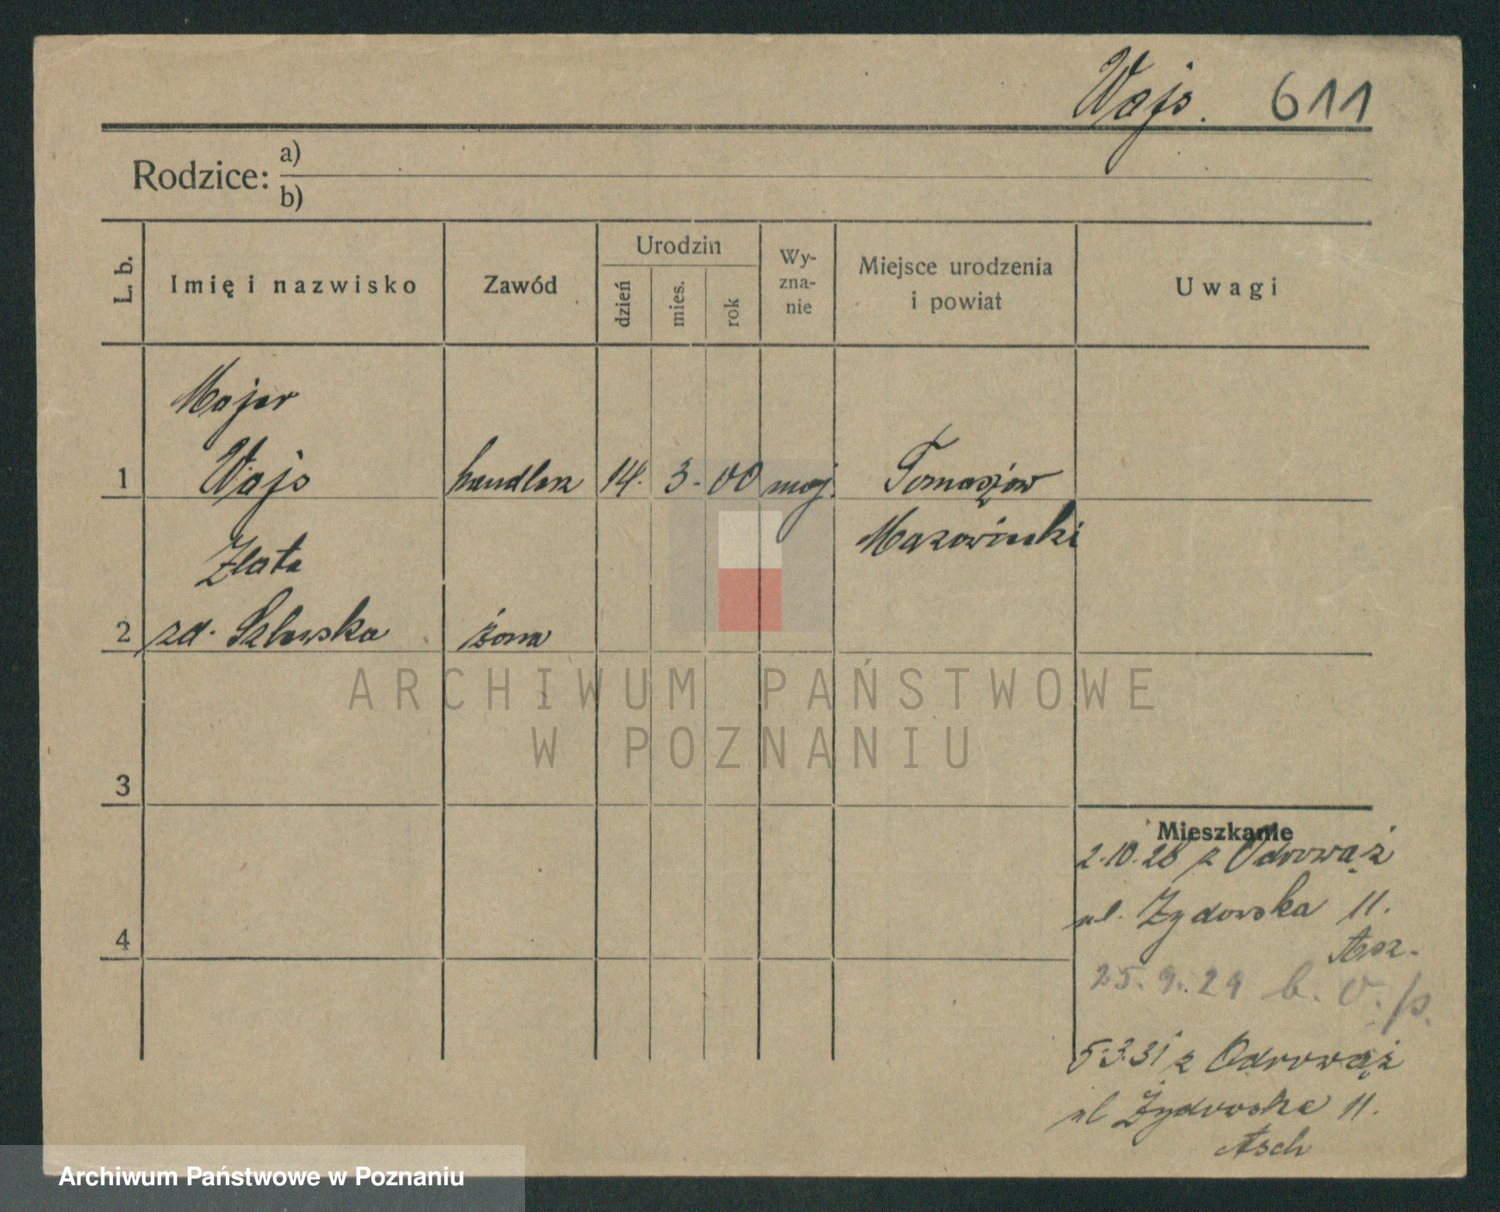 Wajs. 611
Rodzice: a)
b)
L. b. Imię i nazwisko Zawód Urodzin dzień mies. rok Wy-
zna-
nie Miejsce urodzenia
i powiat Uwagi
Majer
1 Wajs handlarz 14. 3. 00 mojż. Tomaszów
Mazowiecki
Zlata
2 zd. Szlewska żona
ARCHIWUM PAŃSTWOWE
W POZNANIU
3
Mieszkanie
2.10.28 z Odrowąż
ul. Żydowska 11.
4
25.9.29 b. v. p.
5.3.31 z Odrowąż
ul Żydowska 11.
Asch
Archiwum Państwowe w Poznaniu